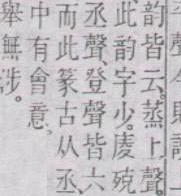 韵皆云、蒸上聲。
此韵字少。庱殑
丞聲、登聲皆六
而此篆古从丞、
中有會意、
舉無涉。